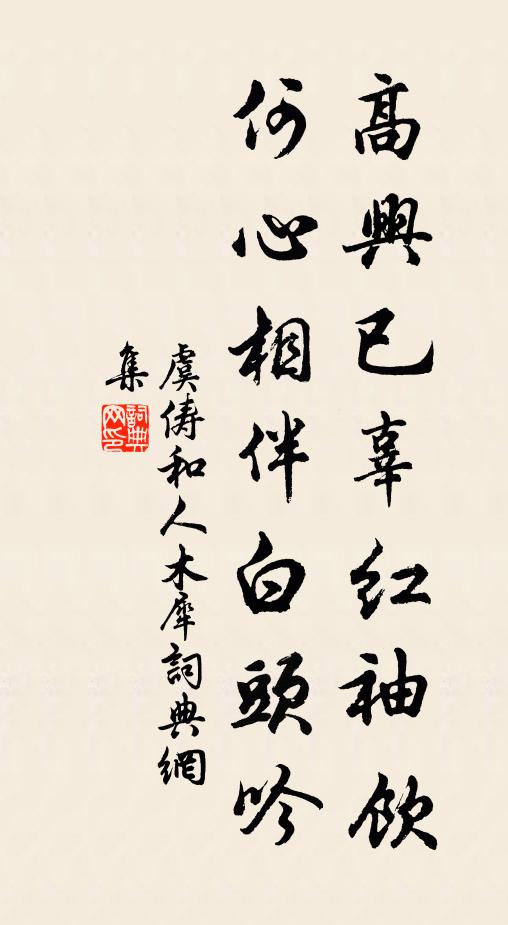 高興已辜紅袖飲
何心相伴白頭吟
虞儔和人木犀詞典網
集
詞典
网印